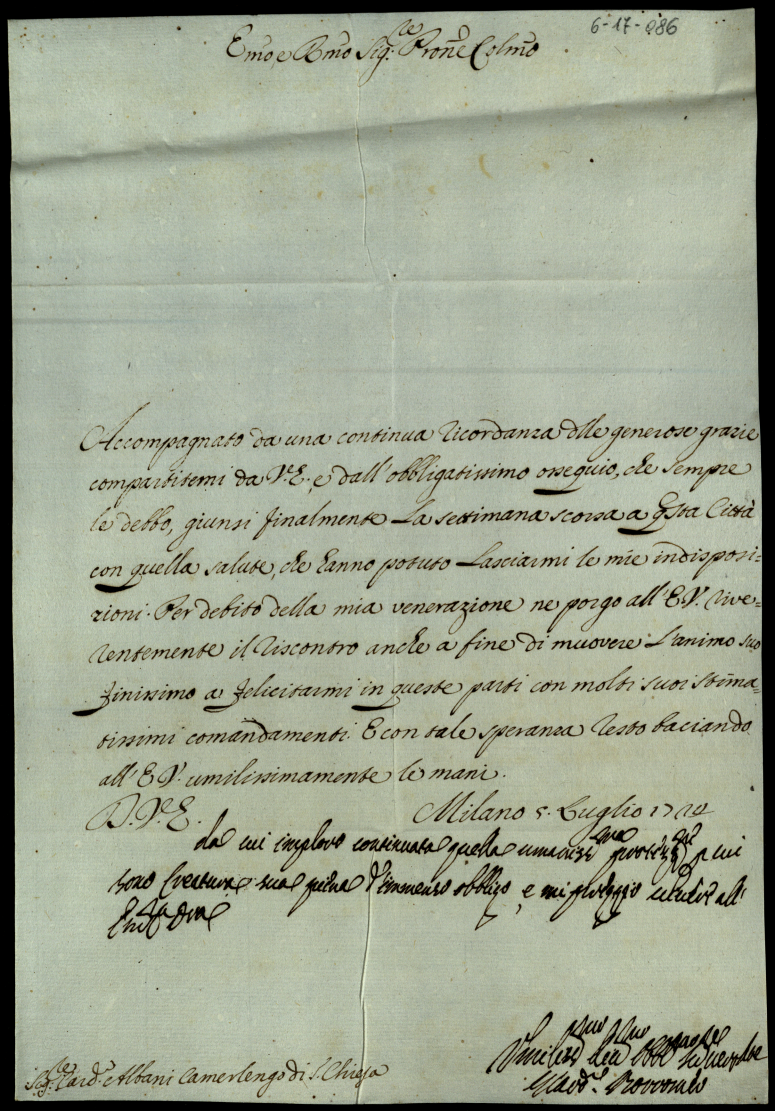 6-17-086
Emo, e Rmo Sig.re Prone Colmo
Accompagnato da una continua ricordanza dlle generose grazie
compartitemi da V.E., e dall'obbligatissimo ossequio, che sempre
le debbo, giunsi finalmente la settimana scorsa a Qsta Città
con quella salute, che hanno potuto lasciarmi le mie indisposi-
zioni. Per debito della mia venerazione ne porgo all'E.V. rive-
rentemente il riscontro anche a fine di muovere l'animo suo
finissimo a felicitarmi in queste parti con molti suoi stima-
tissimi comandamenti. E con tale speranza resto baciando
all'E.V. umilissimamente le mani.
D.V.E. Milano 5. Luglio 1724
da cui imploro continuata quella p cui
sono Creatura sua piena d'immenso obbligo, e mi all'
Sig.re Card.e Albani Camerlengo di S. Chiesa